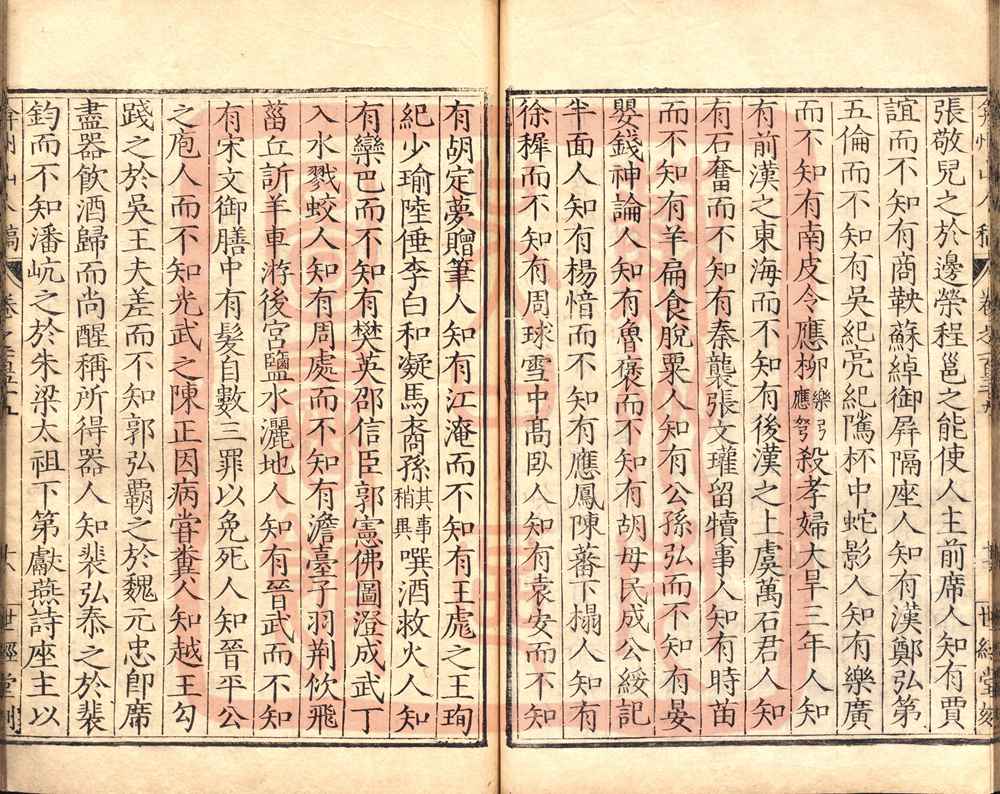 張敬兒之於邊榮程邕之能使人主前席人知有賈
誼而不知有商鞅蘇綽御屏隔座人知有漢鄭弘第
五倫而不知有吳紀亮紀隲杯中蛇影人知有樂廣
而不知有南皮令應柳樂弓應弩殺孝婦大旱三年人知
有前漢之東海而不知有後漢之上虞萬石君人知
有石奮而不知有秦襲張文瓘留犢事人知有時苗
而不知有羊扁食脫粟人知有公孫弘而不知有晏
嬰錢神論人知有魯褒而不知有胡毋民成公綏記
半面人知有楊愔而不知有應鳳陳蕃下榻人知有
徐稺而不知有周球雪中高臥人知有袁安而不知
有胡定夢贈筆人知有江淹而不知有王彪之王珣
紀少瑜陸倕李白和凝馬裔孫其事稍異噀酒救火人知
有欒巴而不知有樊英邵信臣郭憲佛圖澄成武丁
入水戮蛟人知有周處而不知有澹臺子羽荆佽飛
菑丘訢羊車游後宮鹽水灑地人知有晉武而不知
有宋文御膳中有髮自數三罪以免死人知晉平公
之庖人而不知光武之陳正因病嘗糞人知越王勾
踐之於吳王夫差而不知郭弘霸之於魏元忠卽席
盡器飲酒歸而尚醒稱所得器人知裴弘泰之於裴
鈞而不知潘岏之於朱梁太祖下第獻燕詩座主以
世經堂刻